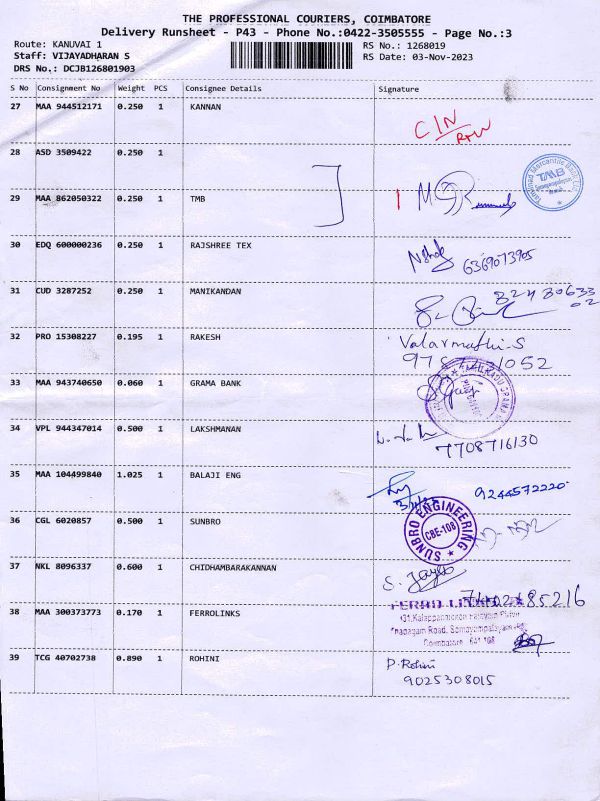 THE PROFESSIONAL COURIERS, COIMBATORE
Delivery Runsheet - P43 - Phone No.:0422-3505555 - Page No.:3
Route: KANUVAI 1 RS No.: 1268019
Staff: VIJAYADHARAN S RS Date: 03-Nov-2023
DRS No.: DCJB126801903
S No Consignment No Weight PCS Consignee Details Signature
27 MAA 944512171 0.250 1 KANNAN
28 ASD 3509422 0.250 1
29 MAA 862050322 0.250 1 TMB
TMB
30 EDQ 600000236 0.250 1 RAJSHREE TEX
6369073905
31 CUD 3287252 0.250 1 MANIKANDAN
32 PRO 15308227 0.195 1 RAKESH Valarmathi-S
33 MAA 943740650 0.060 1 GRAMA BANK
34 VPL 944347014 0.500 1 LAKSHMANAN
7708716130
35 MAA 104499840 1.025 1 BALAJI ENG
9244572220
36 CGL 6020857 0.500 1 SUNBRO
SUNBRO ENGINEERING
CBE-108
37 NKL 8096337 0.600 1 CHIDHAMBARAKANNAN
38 MAA 300373773 0.170 1 FERROLINKS
Coimbatore - 641 108
39 TCG 40702738 0.890 1 ROHINI P. Rohini
9025308015